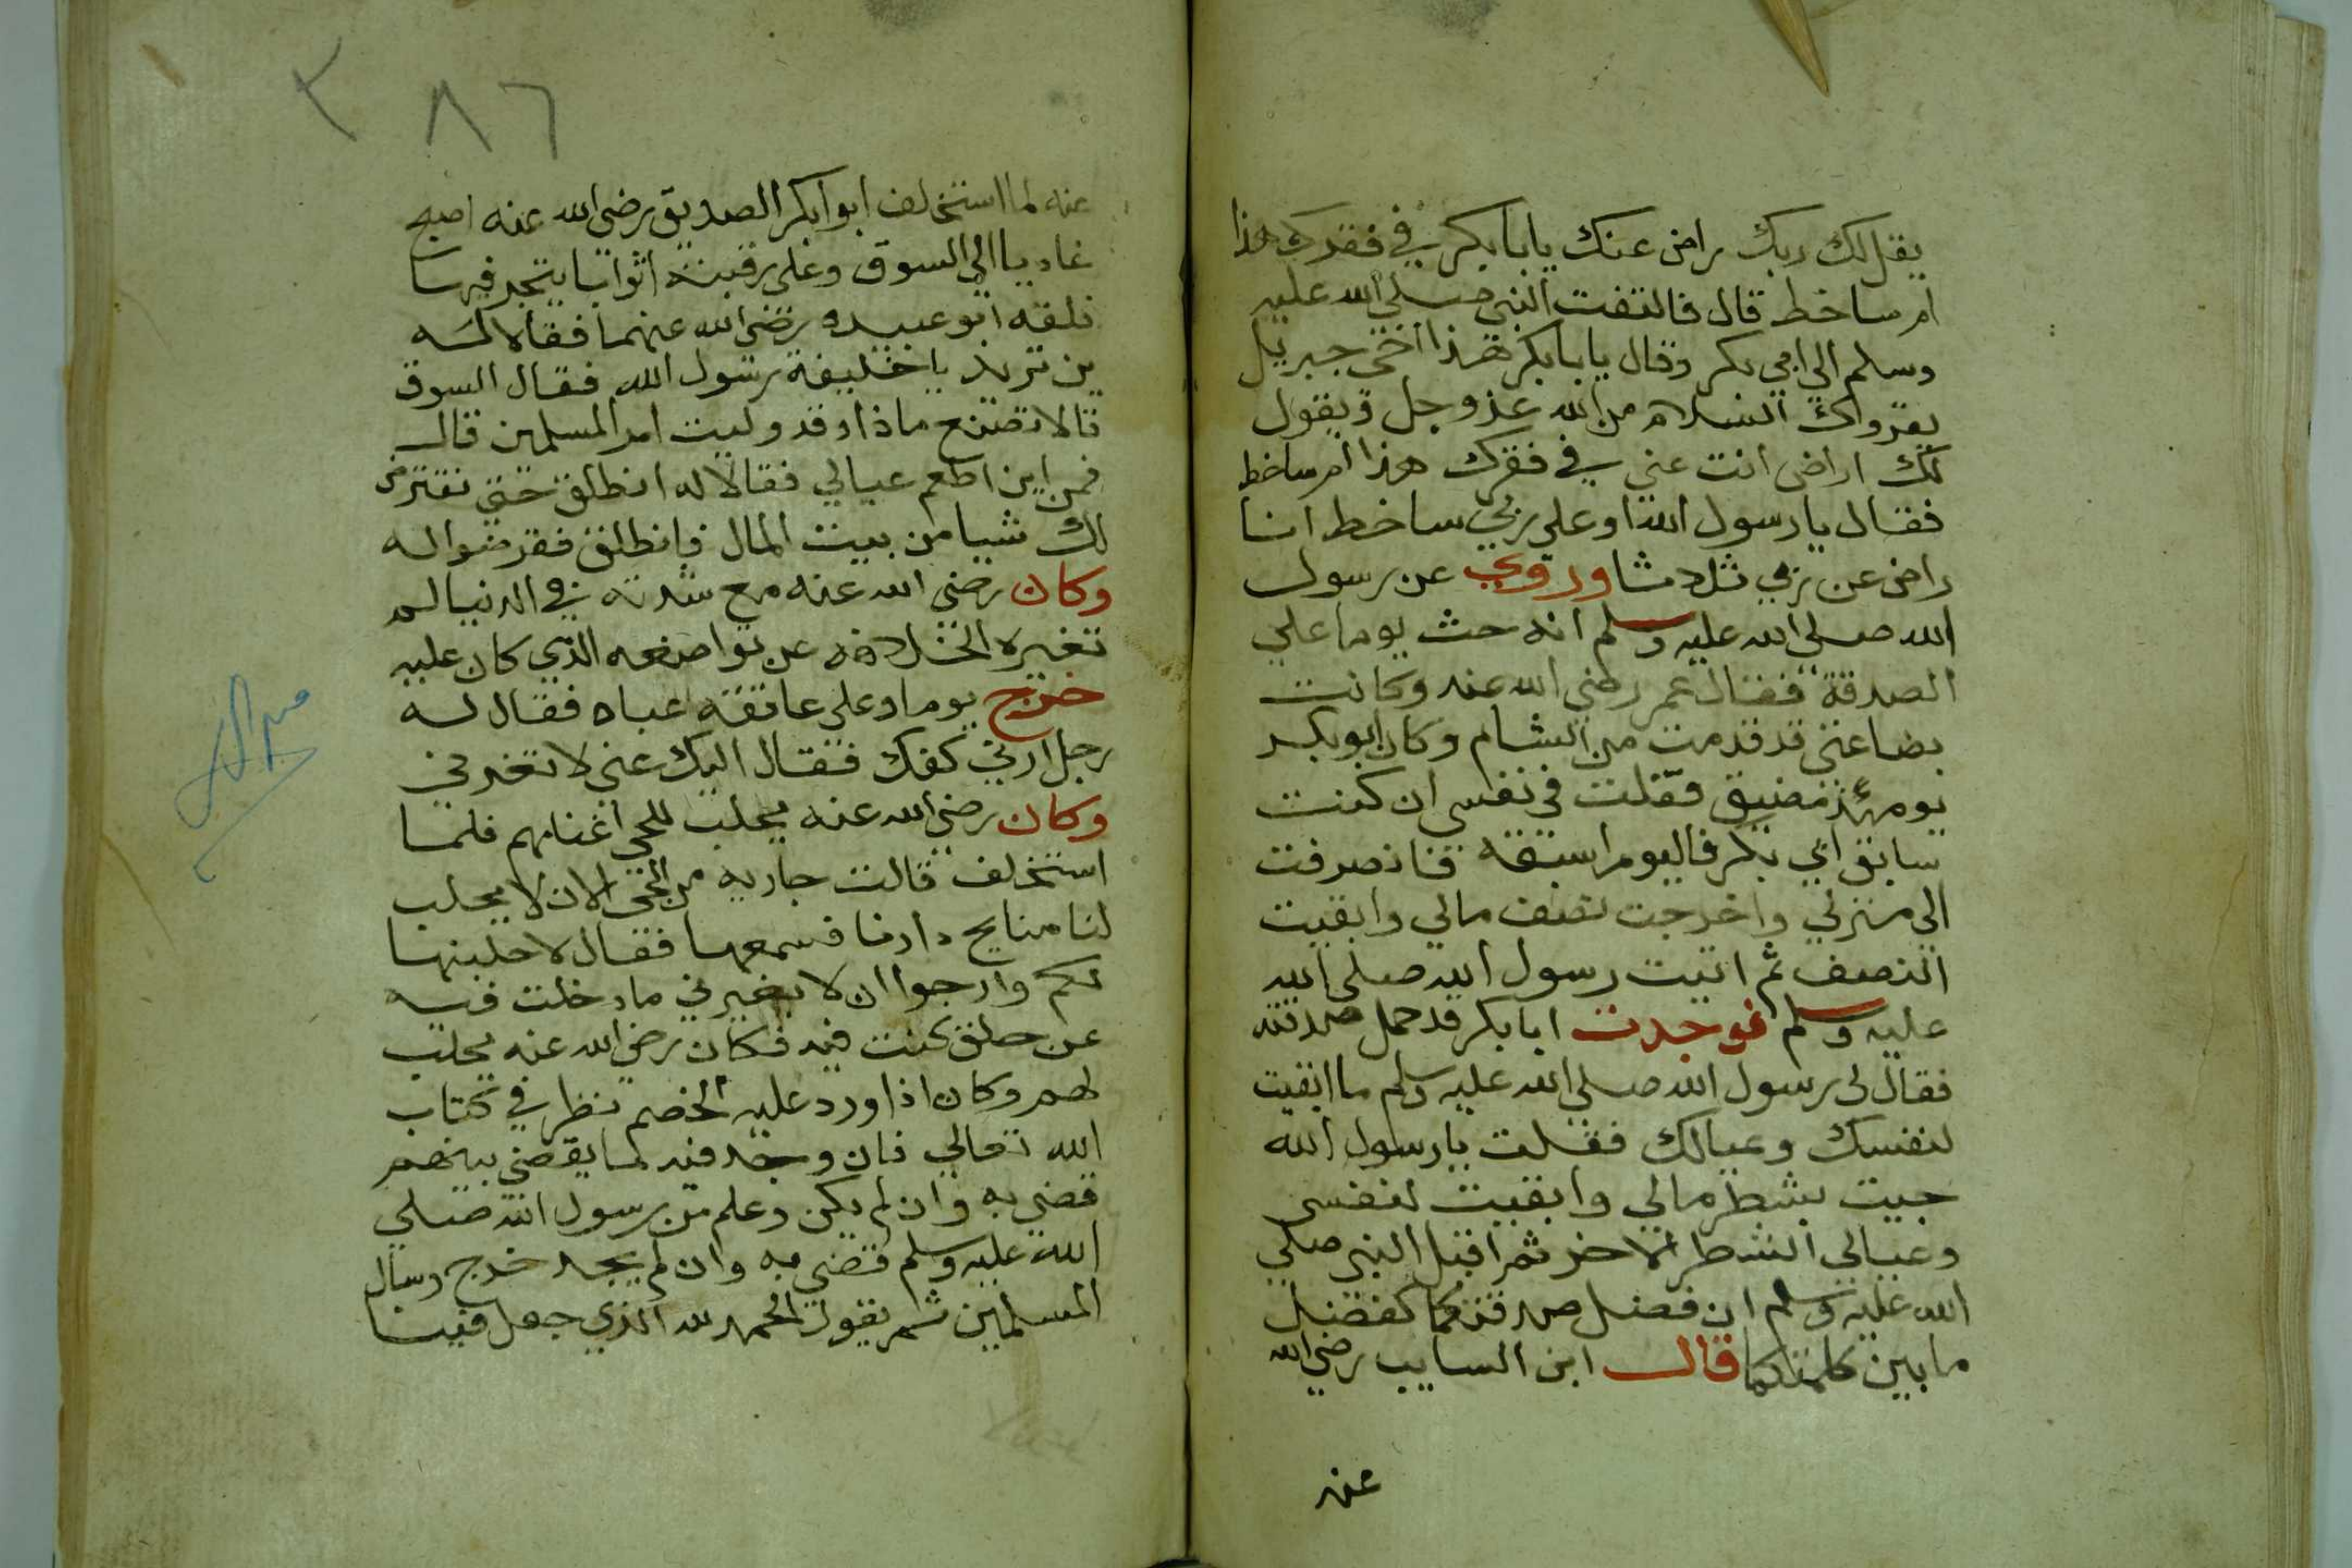 يقل لك ربك راض عنك يابابكر في فقرك هذا
ام ساخط قال فالتفت النبي صلي الله عليه
وسلم الي ابي بكر وقال يابابكر هذا اخي جبريل
يقرواك السلام من الله عز وجل ويقول
لك اراض انت عني في فقرك هذا ام ساخط
فقال يا رسول الله اوعلي ربي ساخط انا
راض عن ربي ثلاثا وروي عن رسول
الله صلي الله عليه وسلم انه حث يوما علي
الصدقة فقال عمر رضي الله عنه وكانت
بضاعتي قد قدمت من الشام وكان ابو بكر
يومئذ مضيق فقلت في نفسي ان كنت
سابق ابي بكر فاليوم اسبقه فانصرفت
الي منزلي واخرجت نصف مالي وابقيت
النصف ثم اتيت رسول الله صلي الله
عليه وسلم فوجدت ابابكر قد حمل صدقته
فقال لي رسول الله صلي الله عليه وسلم ما ابقيت
لنفسك وعيالك فقلت يا رسول الله
جيت بشطر مالي وابقيت لنفسي
وعيالي الشطر الاخر ثم اقبل النبي صلي
الله عليه وسلم ان فضل صدقتكما كفضل
ما بين كلمتكما قال ابن السايب رضي الله
عنه
٣٨٦
عنه لما استخلف ابوا بكر الصديق رضي الله عنه اصبح
غاديا الي السوق وعلي رقبته اثوابا يتجر فيها
فلقه ابو عبيده رضي الله عنهما فقالا له
ين تريد يا خليفة رسول الله فقال السوق
قالا تصنع ماذا وقد وليت امر المسلمين قال
فمن اين اطعم عيالي فقالا له انطلق حتي نفترض
لك شيا من بيت المال فانطلق ففرضوا له
وكان رضي الله عنه مع شدته في الدنيا لم
تغيره الخلافه عن تواضعه الذي كان عليه
خرج يوما وعلي عاتقه عباه فقال له
رجل ارني كفك فقال اليك عني لا تغرني
وكان رضي الله عنه يحلب للحي اغنامهم فلما
استخلف قالت جاريه من الحي الان لا يحلب
لنا منايح دارنا فسمعها فقال لاحلبنها
لكم وارجوا ان لا يغيرني ما دخلت فيه
عن خلق كنت فيه فكان رضي الله عنه يحلب
لهم وكان اذا ورد عليه الخصم نظر في كتاب
الله تعالي فان وجد فيه لما يقضي بينهم
قضي به وان لم يكن وعلم من رسول الله صلي
الله عليه وسلم قضي به وان لم يجد خرج وسال
المسلمين ثم يقول الحمد لله الذي جعل فينا